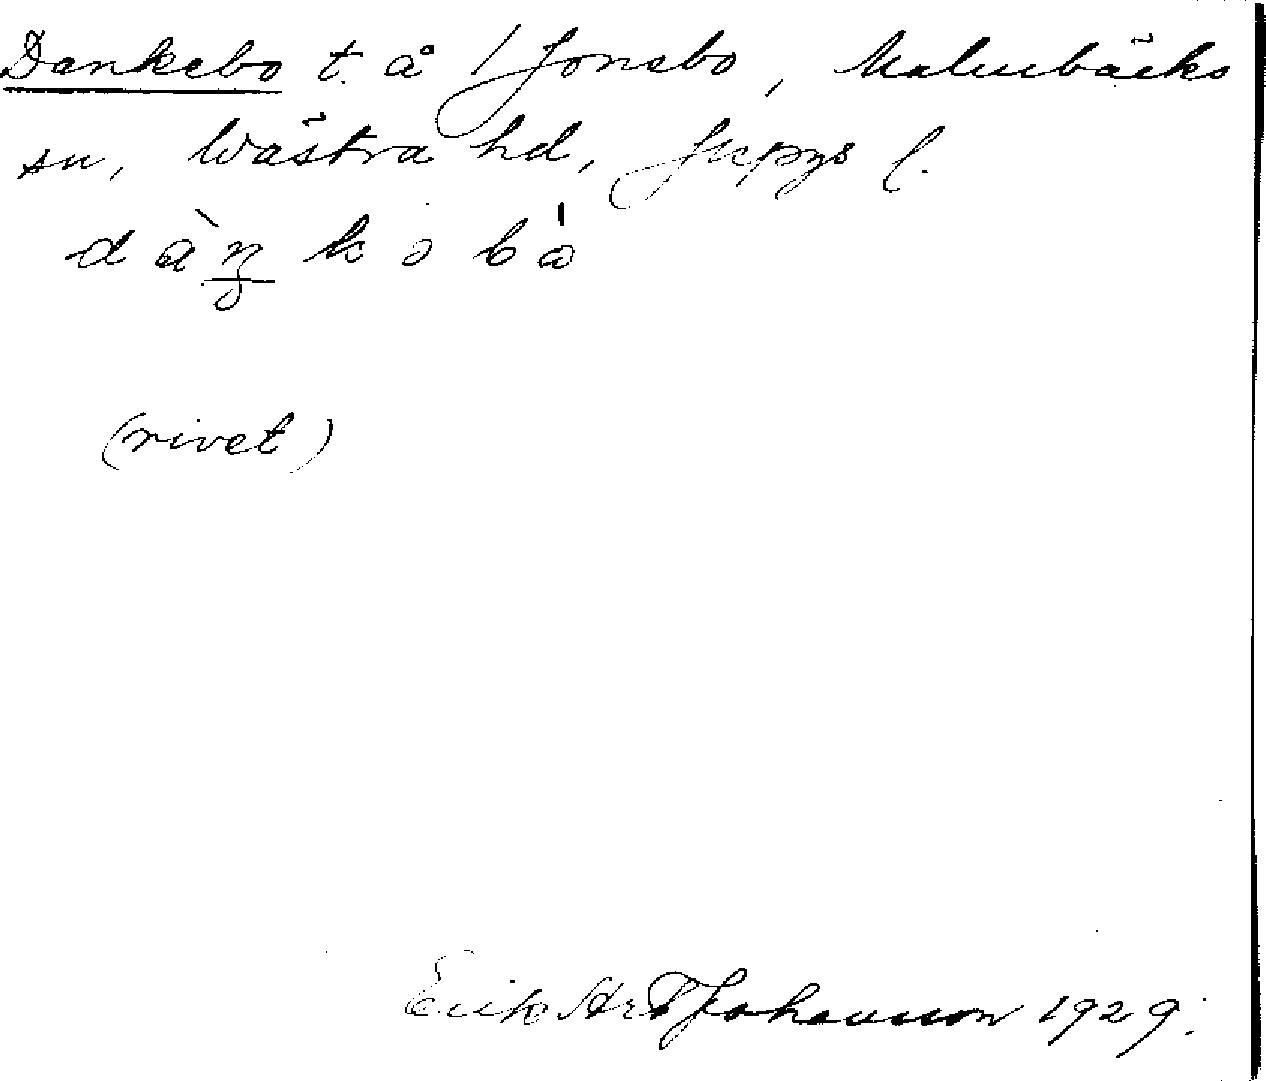 Dankebo t. å 1 Jonsbo, Malmbäcks
sn, Västra hd, Jkpgs l.
(rivet)
Erik Johansson 1929.